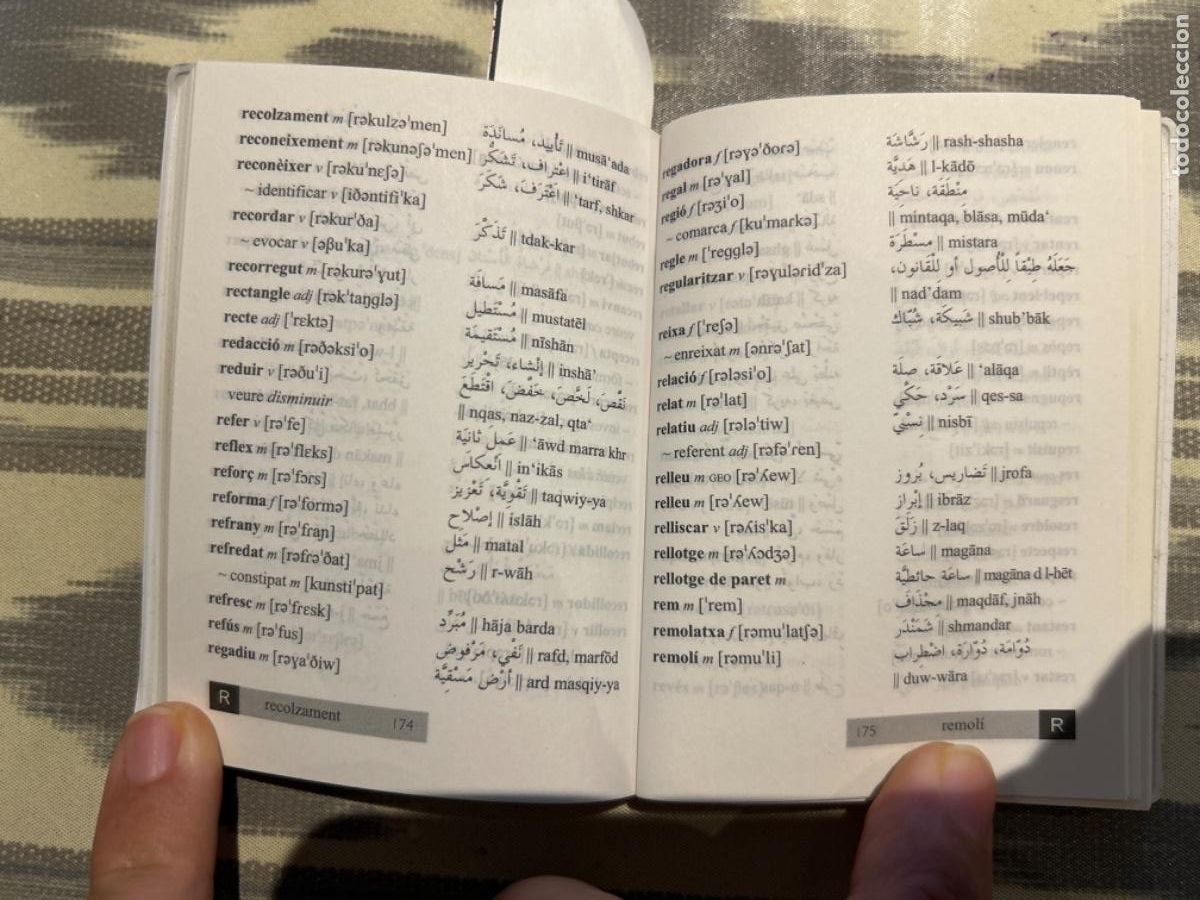 recolzament m [rəkulzəˈmen] تَأْيِيد، مُسانَدَة || musā‘ada
reconeixement m [rəkunəʃəˈmen] اِعْتِراف، تَشَكُّر || i‘tirāf
reconèixer v [rəkuˈnɛʃə] اِعْتَرَفَ، شَكَرَ || ‘tarf, shkar
~ identificar v [iðəntifiˈka]
recordar v [rəkurˈða] تَذَكَّرَ || tdak-kar
~ evocar v [əβuˈka]
recorregut m [rəkurəˈɣut] مَسافَة || masāfa
rectangle adj [rəkˈtaŋglə] مُسْتَطيل || mustatēl
recte adj [ˈrɛktə] مُسْتَقيمَة || nīshān
redacció m [rəðəksiˈo] إنْشاء، تَحْرير || inshā’
reduir v [rəðuˈi] نَقْصَ، لَخَّصَ، خَفَّضَ، اقْتَطَعَ
veure disminuir || nqas, naz-zal, qta‘
refer v [rəˈfe] عَمِلَ ثانِيَة || ‘āwd marra khr
reflex m [rəˈflɛks] انْعِكاس || in‘ikās
reforç m [rəˈfɔrs] تَقْوِيَة، تَعْزيز || taqwiy-ya
reforma f [rəˈformə] إصْلاح || islāh
refrany m [rəˈfraɲ] مَثَل || matal
refredat m [rəfrəˈðat] رَشْح || r-wāh
~ constipat m [kunstiˈpat]
refresc m [rəˈfrɛsk] مُبَرِّد || hāja barda
refús m [rəˈfus] نَفْي، مَرْفوض || rafd, marfōd
regadiu m [rəɣaˈðiw] أرْض مَسْقِيَّة || ard masqiy-ya
R recolzament 174
regadora f [rəɣəˈðorə] رَشَّاشَة || rash-shasha
regal m [rəˈɣal] هَدِيَّة || l-kādō
regió f [rəʒiˈo] مِنْطَقَة، ناحِيَة
~ comarca f [kuˈmarkə] || mintaqa, blāsa, mūda‘
regle m [ˈregglə] مِسْطَرَة || mistara
regularitzar v [rəɣuləridˈza] جَعَلَهُ طِبْقاً لِلْأُصول أو لِلْقانون،
|| nad’dam
reixa f [ˈreʃə] شَبيكَة، شُبّاك || shub’bāk
~ enreixat m [ənrəˈʃat]
relació f [rələsiˈo] عَلاقَة، صِلَة || ‘alāqa
relat m [rəˈlat] سَرْد، حَكْي || qes-sa
relatiu adj [rələˈtiw] نِسْبِيّ || nisbī
~ referent adj [rəfəˈren]
relleu m GEO [rəˈʎew] تَضاريس، بُروز || jrofa
relleu m [rəˈʎew] إبْراز || ibrāz
relliscar v [rəʎisˈka] زَلَقَ || z-laq
rellotge m [rəˈʎɔdʒə] ساعَة || magāna
rellotge de paret m ساعَة حائِطِيَّة || magāna d l-hēt
rem m [ˈrem] مِجْذَاف || maqdāf, jnāh
remolatxa f [rəmuˈlatʃə] شَمَنْدَر || shmandar
remolí m [rəmuˈli] دُوّامَة، دُوّارَة، اضْطِراب
|| duw-wāra
175 remolí R
todocoleccion